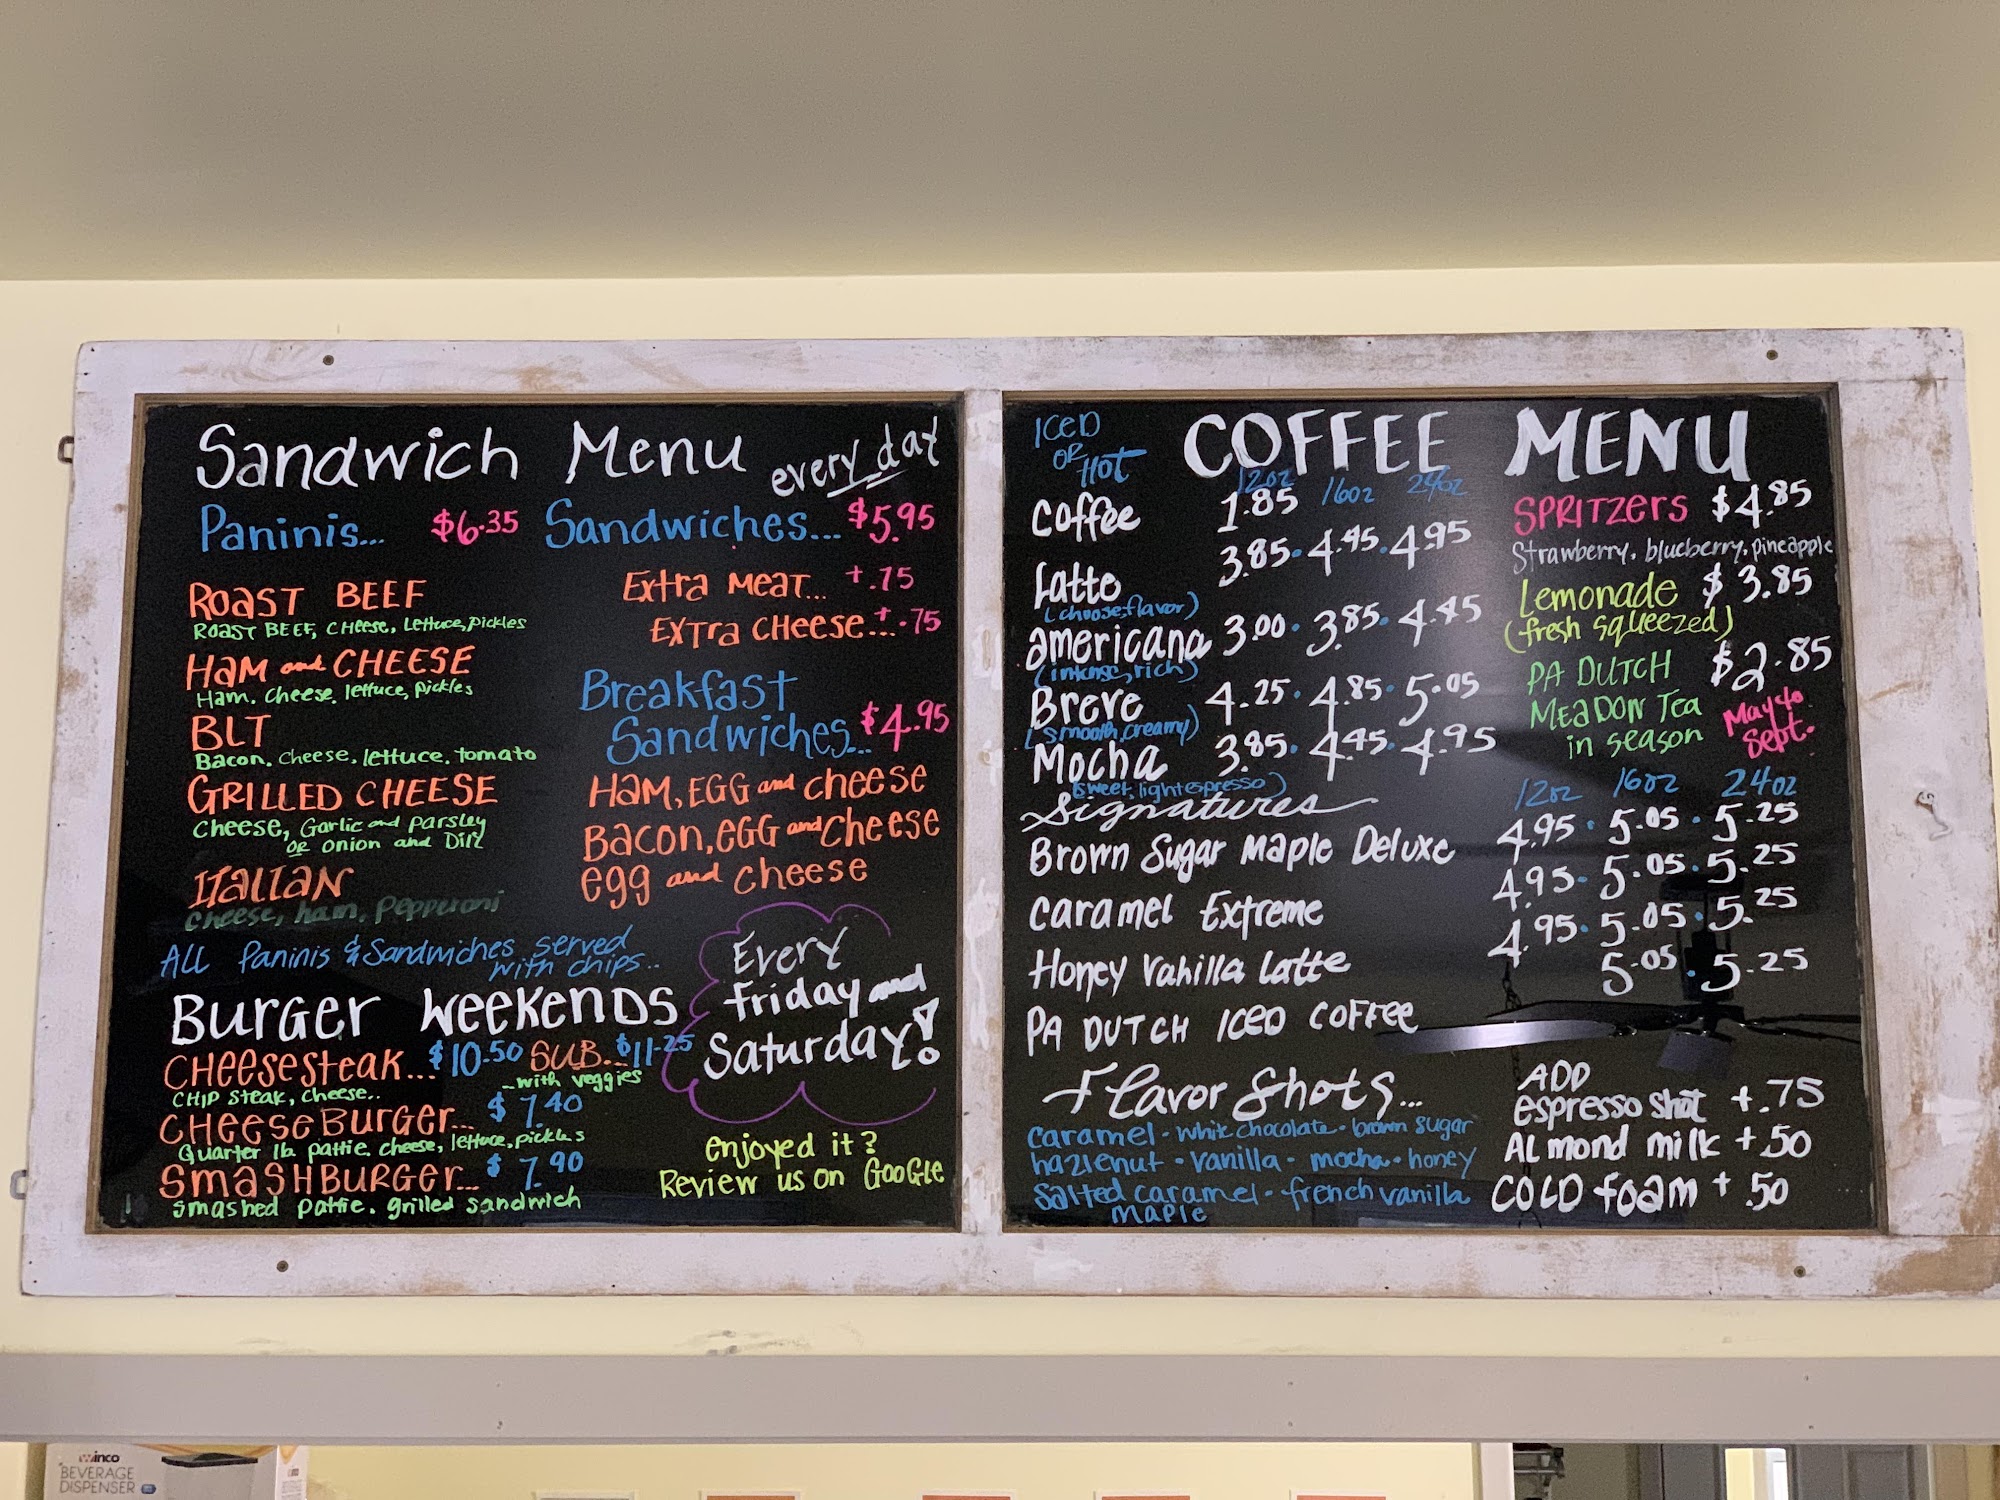 Sandwich Menu every day
Paninis... $6.35
ROAST BEEF
ROAST BEEF, CHeese, Lettuce, pickles
HAM and CHEESE
Ham. cheese. lettuce, pickles
BLT
Bacon. cheese, lettuce. tomato
GRILLED CHEESE
cheese, Garlic and parsley
OR onion and Dill
ITALIAN
cheese, ham, pepperoni
Sandwiches... $5.95
Extra MEAT... +.75
EXTRA CHEESE... +.75
Breakfast
Sandwiches... $4.95
HAM, EGG and cheese
Bacon, EGG and cheese
egg and cheese
ALL Paninis & Sandwiches served
with chips..
BURGER WEEKENDS
CHeesesteak... $10.50 SUB... $11.25
CHIP steak, cheese..
...with veggies
CHeeseBURGER... $7.40
Quarter lb. pattie. cheese, lettuce, pickles
SmasHBURGER... $7.90
smashed pattie. grilled sandwich
Every
friday and
Saturday!
enjoyed it?
Review us on GooGle
ICED
OR
HOT
COFFEE MENU
12oz 16oz 24oz
Coffee 1.85
Latte 3.85 . 4.45 . 4.95
(choose flavor)
americana 3.00 . 3.85 . 4.45
(intense, rich)
Breve 4.25 . 4.85 . 5.05
(smooth, creamy)
Mocha 3.85 . 4.45 . 4.95
(sweet, light espresso)
SPRITZERS $4.85
Strawberry, blueberry, pineapple
Lemonade $3.85
(fresh squeezed)
PA DUTCH $2.85
MEADOW Tea
in season
May to
Sept.
Signatures 12oz 16oz 24oz
Brown Sugar Maple Deluxe 4.95 . 5.05 . 5.25
Caramel Extreme 4.95 . 5.05 . 5.25
Honey Vanilla Latte 4.95 . 5.05 . 5.25
PA DUTCH ICED COFFEE 5.05 . 5.25
Flavor Shots...
caramel . white chocolate . brown sugar
hazlenut . vanilla . mocha . honey
Salted caramel . french vanilla
maple
ADD
espresso shot +.75
ALmond milk +.50
COLD foam +.50
winco
BEVERAGE
DISPENSER